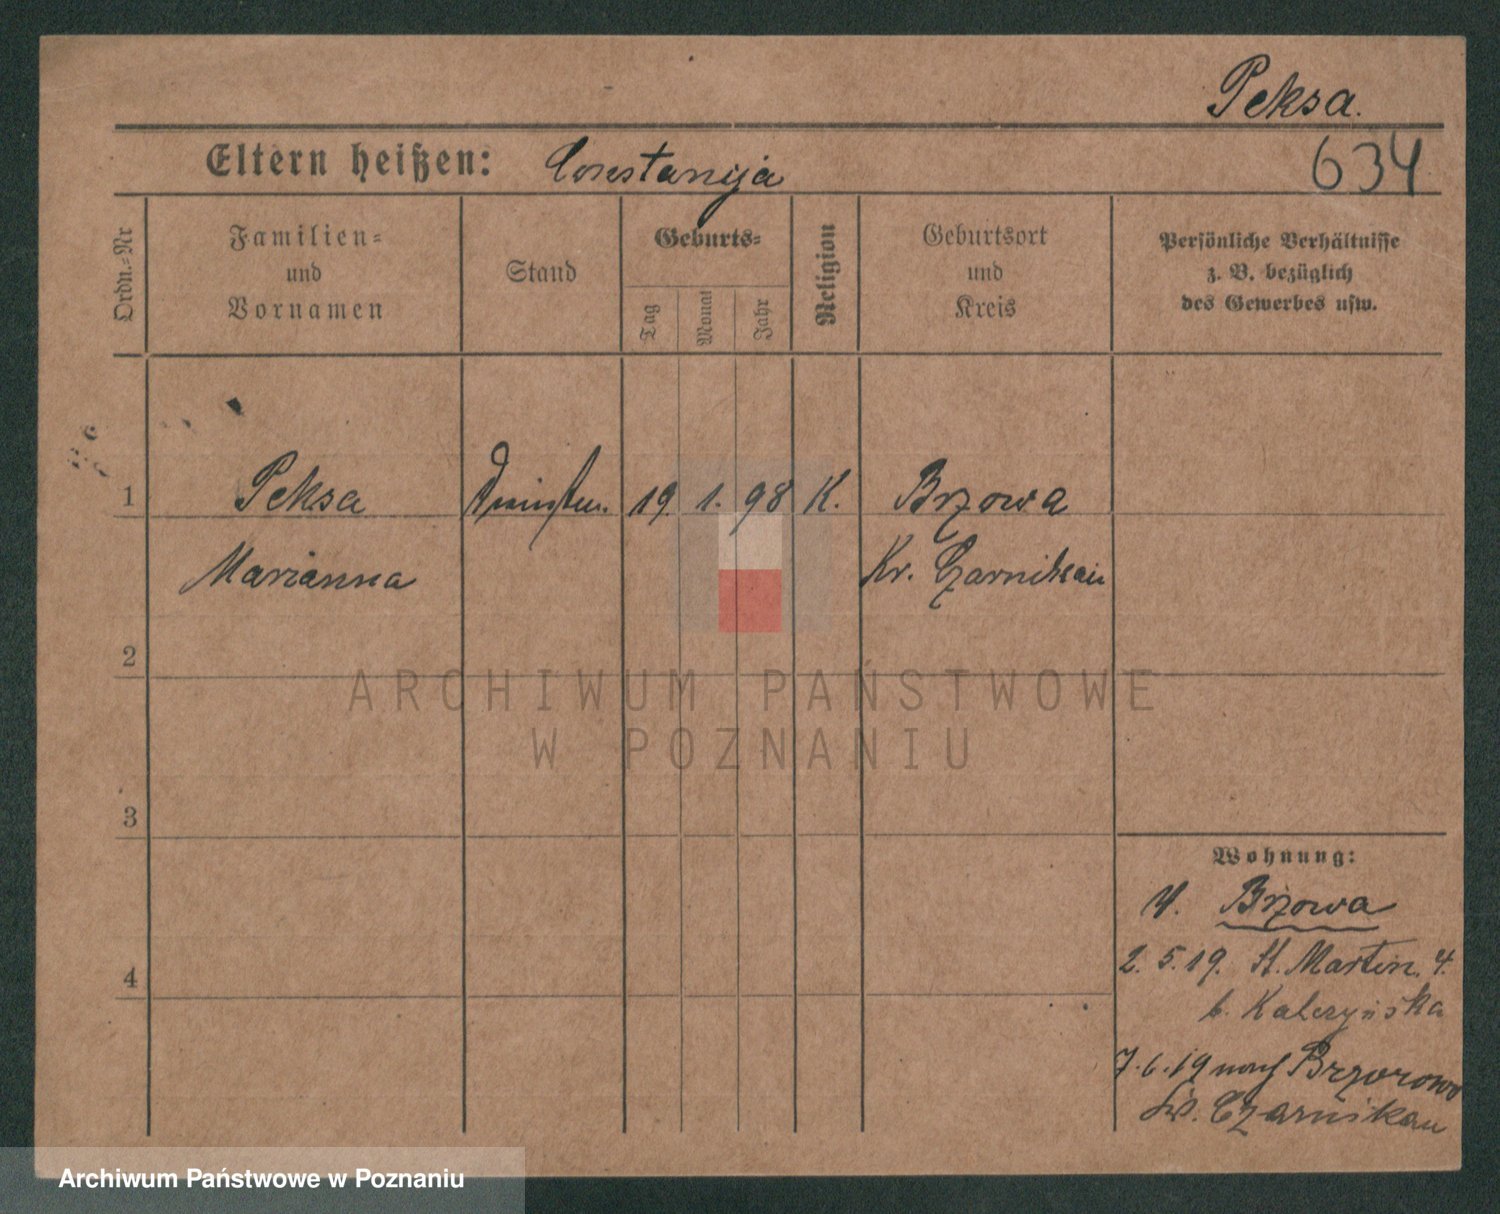 Peksa.
634
Eltern heißen: Constanija
Ordn.-Nr
Familien-
und
Vornamen
Stand
Geburts-
Tag
Monat
Jahr
Religion
Geburtsort
und
Kreis
Persönliche Verhältnisse
z. B. bezüglich
des Gewerbes usw.
1 Peksa 19. 1. 98 K. Brzowa
Marianna Kr. Czarnikau
2
3
4
Wohnung:
V. Brzowa
2. 5. 19. St. Martin. 4.
b. Kalczyńska
7. 6. 19 nach Brzorowo
Czarnikau
ARCHIWUM PAŃSTWOWE
W POZNANIU
Archiwum Państwowe w Poznaniu